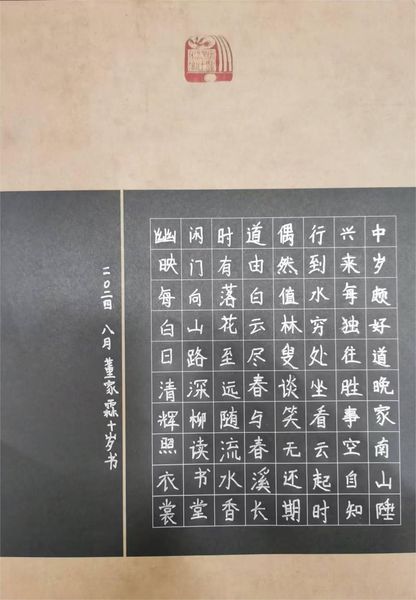 中岁颇好道晚家南山陲
兴来每独往胜事空自知
行到水穷处坐看云起时
偶然值林叟谈笑无还期
道由白云尽春与春溪长
时有落花至远随流水香
闲门向山路深柳读书堂
幽映每白日清辉照衣裳
二〇二四 八月 董家霖十岁书